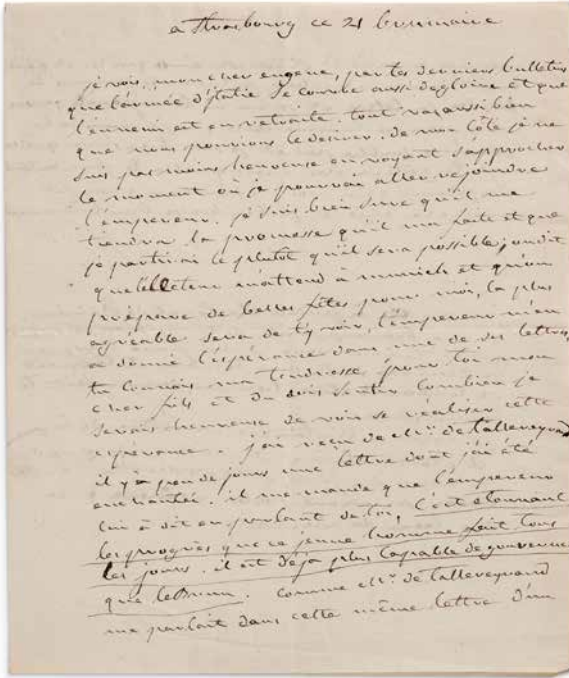 a Strasbourg ce 21 brumaire
je vois, mon cher eugene, par les derniers bulletins
que l'armée d'italie se couvre aussi de gloire et que
l'ennemi est en retraite. tout va aussi bien
que nous pouvions le desirer. de mon côté je ne
suis pas moins heureuse en voyant s'approcher
le moment où je pourrai aller rejoindre
l'empereur. je suis bien sure qu'il me
tiendra la promesse qu'il m'a faite et que
je partirai le plutôt qu'il sera possible, on dit
que l'electeur m'attend à munich et qu'on
prépare de belles fêtes pour moi, la plus
agréable sera de t'y voir, l'empereur m'en
a donné l'espérance dans une de ses lettres,
tu connais ma tendresse pour toi mon
cher fils et tu dois sentir combien je
serais heureuse de voir se réaliser cette
espérance. j'ai reçu de Mr. de talleyrand
il y a peu de jours une lettre dont j'ai été
enchantée. il me mande que l'empereur
lui a dit en parlant de toi, c'est etonnant
les progrès que ce jeune homme fait tous
les jours. il est déja plus capable de gouverner
que lebrun. comme Mr. de talleyrand
me parlait dans cette même lettre d'un